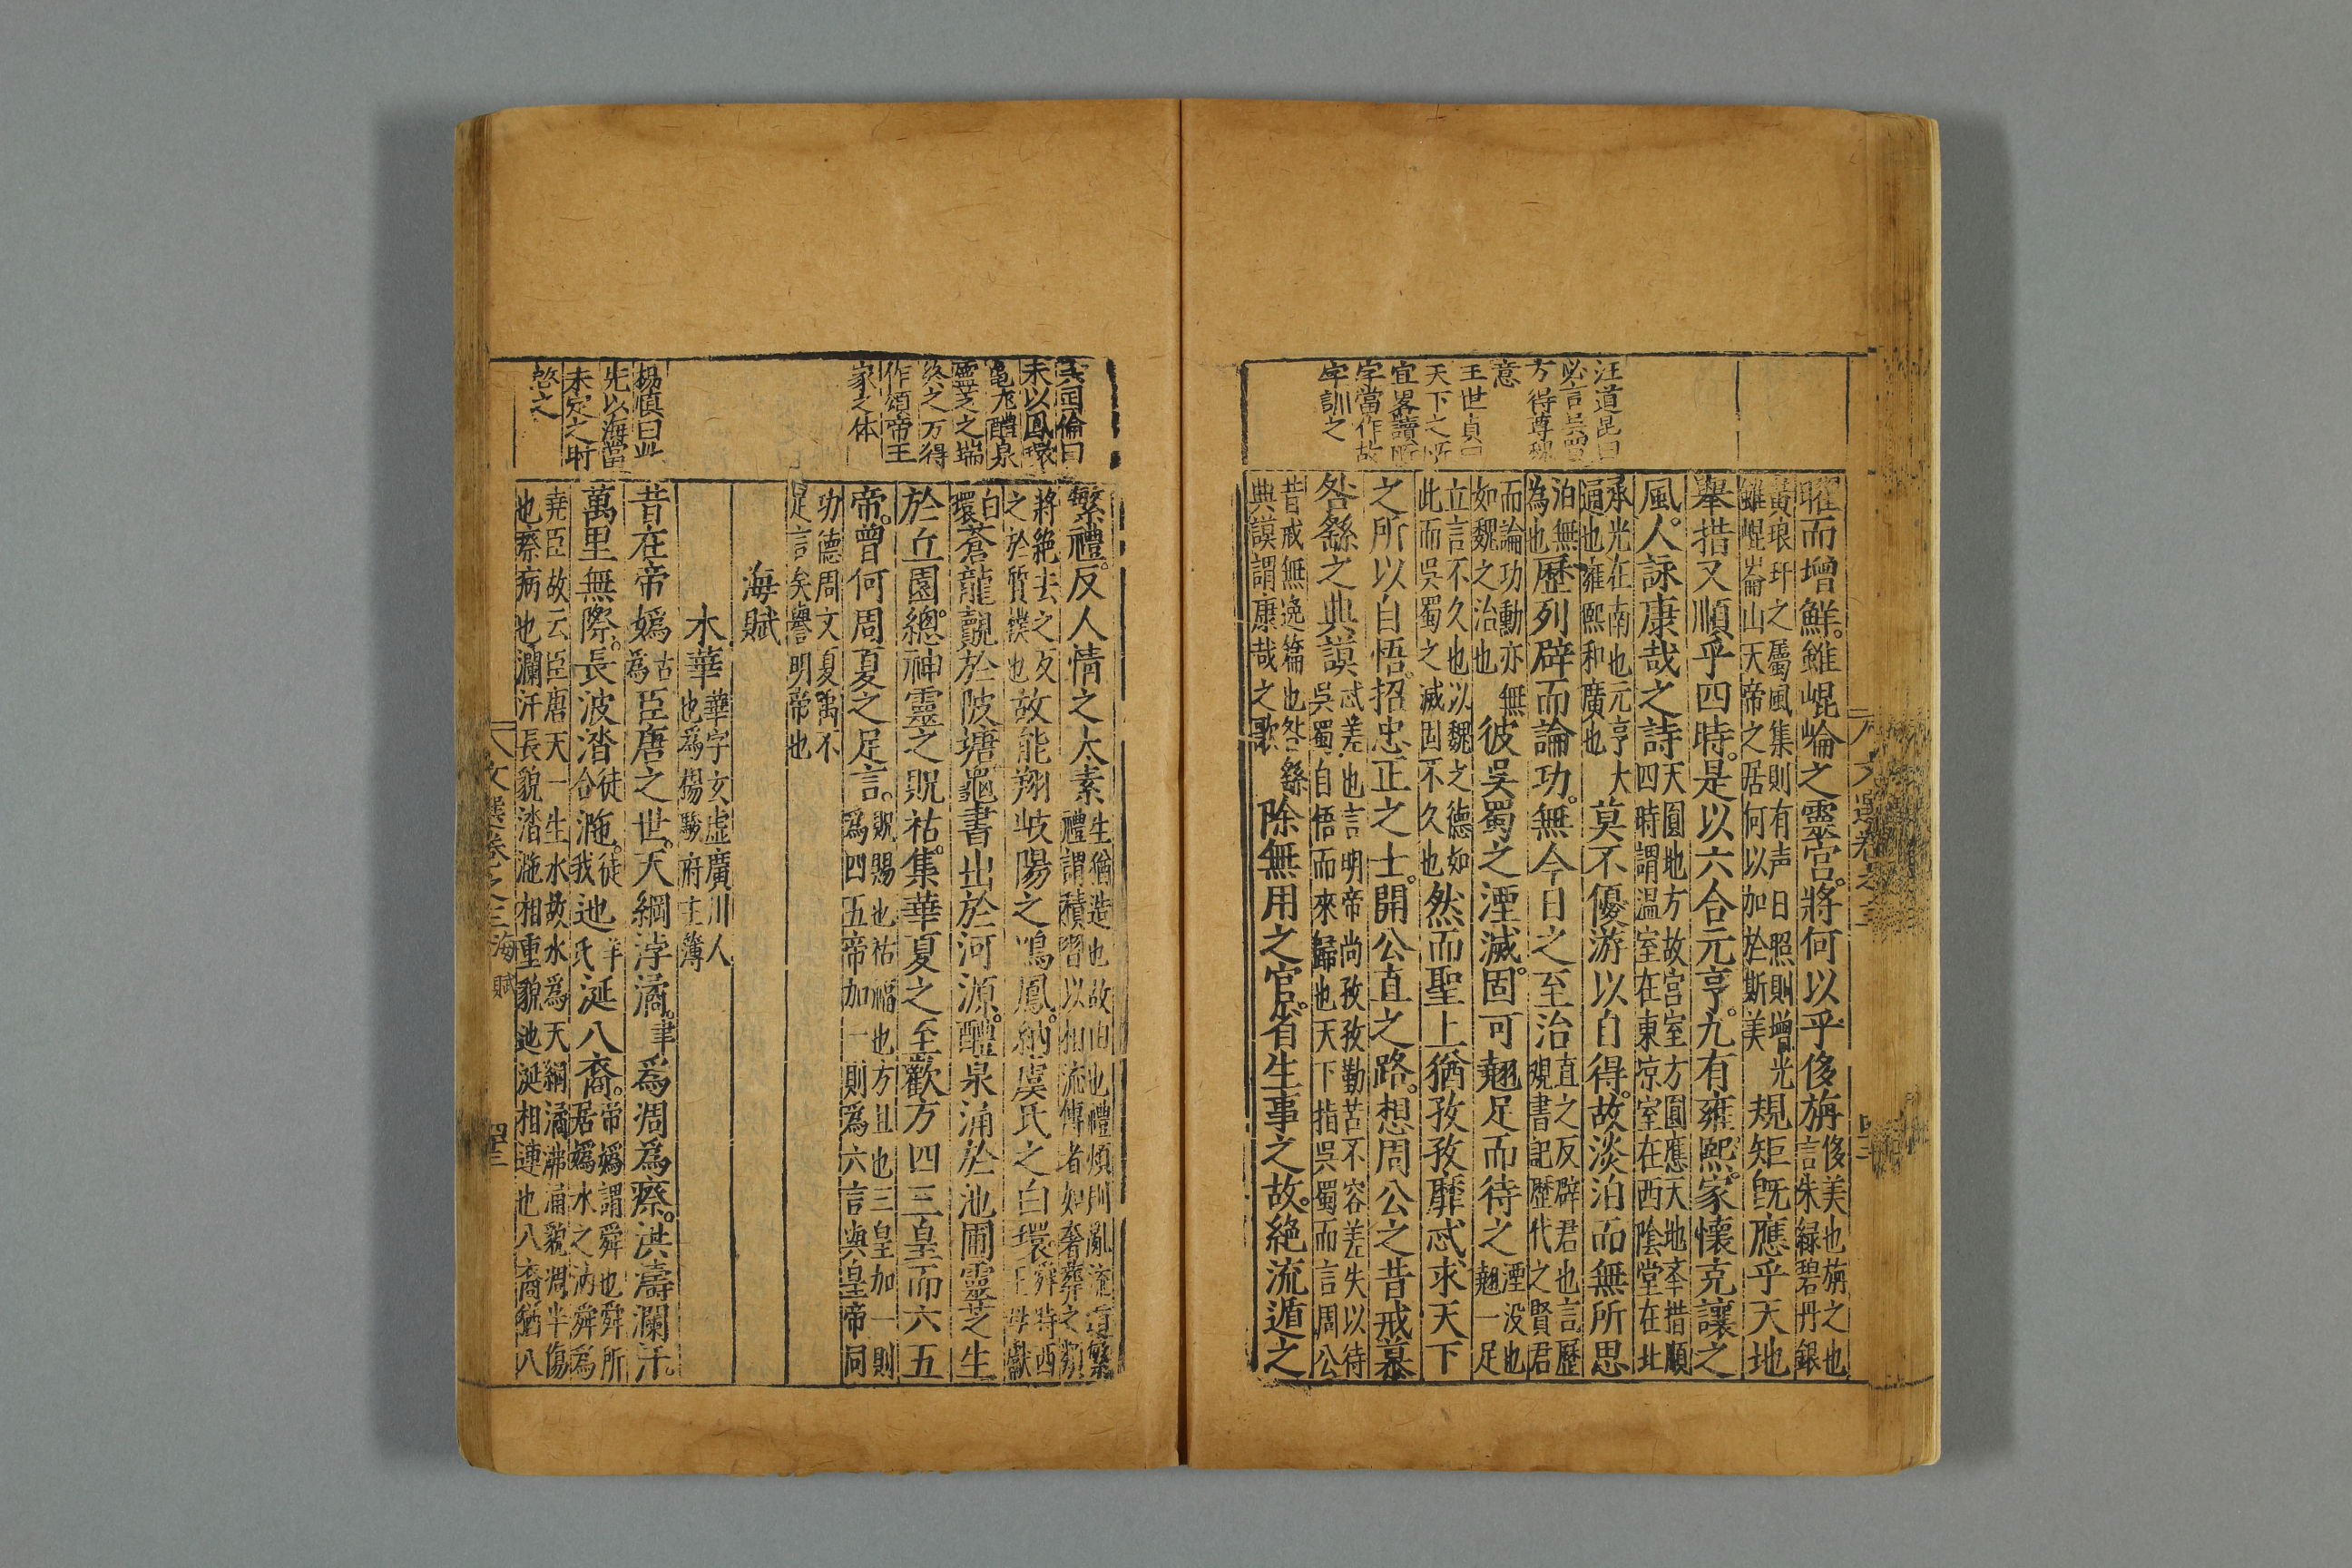 汪道昆曰
必言吳蜀
方得尊魏
意
王世貞曰
天下之所
宜畧讀所
字當作故
字訓之
曜而增鮮。雖崐崘之靈宮。將何以乎侈旃侈美也旃之也言朱緑碧丹銀
黃琅玕之屬風集則有声日照則增光雖崐崙山天帝之居何以加於斯美規矩旣應乎天地
舉措又順乎四時。是以六合元亨。九有雍熙。家懷克讓之
風。人詠康哉之詩天圓地方故宮室方圓應天地夲措順四時謂温室在東凉室在西陰堂在北
承光在南也元亨大通也雍熙和廣也莫不優游以自得。故淡泊而無所思
泊無為也歷列辟而論功。無今日之至治直之反辟君也言歷覌書記歷代之賢君
而論功勳亦無如魏之治也彼吳蜀之湮滅。固可翹足而待之湮没也翹一足
立言不久也以魏之德如此而吳蜀之滅固不久也然而聖上猶孜孜靡忒求天下
之所以自悟。招忠正之士。開公直之路。想周公之昔戒慕
咎繇之典謨忒差也言明帝尚孜孜勤苦不容差失以待吳蜀自悟而來歸也天下指吳蜀而言周公
昔戒無逸篇也咎繇典謨謂康哉之歌除無用之官。省生事之故。絕流遁之
文選卷之三
孟田倫曰
未以鳳環
龜龍醴泉
靈芝之瑞
終之万得
作頌帝王
家之体
楊慎曰此
先以海當
未定之時
啓之
繁禮。反人情之太素生猶造也故曲也禮煩則亂流遁繁禮謂積習以相流傳者如奢葬之類
將絶去之反之於質樸也故能翔岐陽之鳴鳳。納虞氏之白環。舜時西王母獻
白環蒼龍覿於陂塘龜書出於河源。醴泉涌於池圃靈芝生
於丘園。總神靈之貺祜。集華夏之至歡方四三皇而六五
帝。曾何周夏之足言。貺賜也祜福也方且也三皇加一則為四五帝加一則為六言與皇帝同
功德周文夏禹不足言矣譽明帝也
海賦
木華華字玄虛廣川人也為楊駿府主簿
昔在帝嬀古為臣唐之世。天綱浡潏。聿爲凋爲瘵。洪濤瀾汗。
萬里無際。長波涾徒合㴰。徒我迆羊氏涎八裔。帝嬀謂舜也舜所居嬀水之汭舜為
堯臣故云臣唐天一生水故水爲天綱潏沸涌貌凋半傷也瘵病也瀾汗長貌涾㴰相重貌迆涎相連也八裔猶八
文選卷之三
海賦